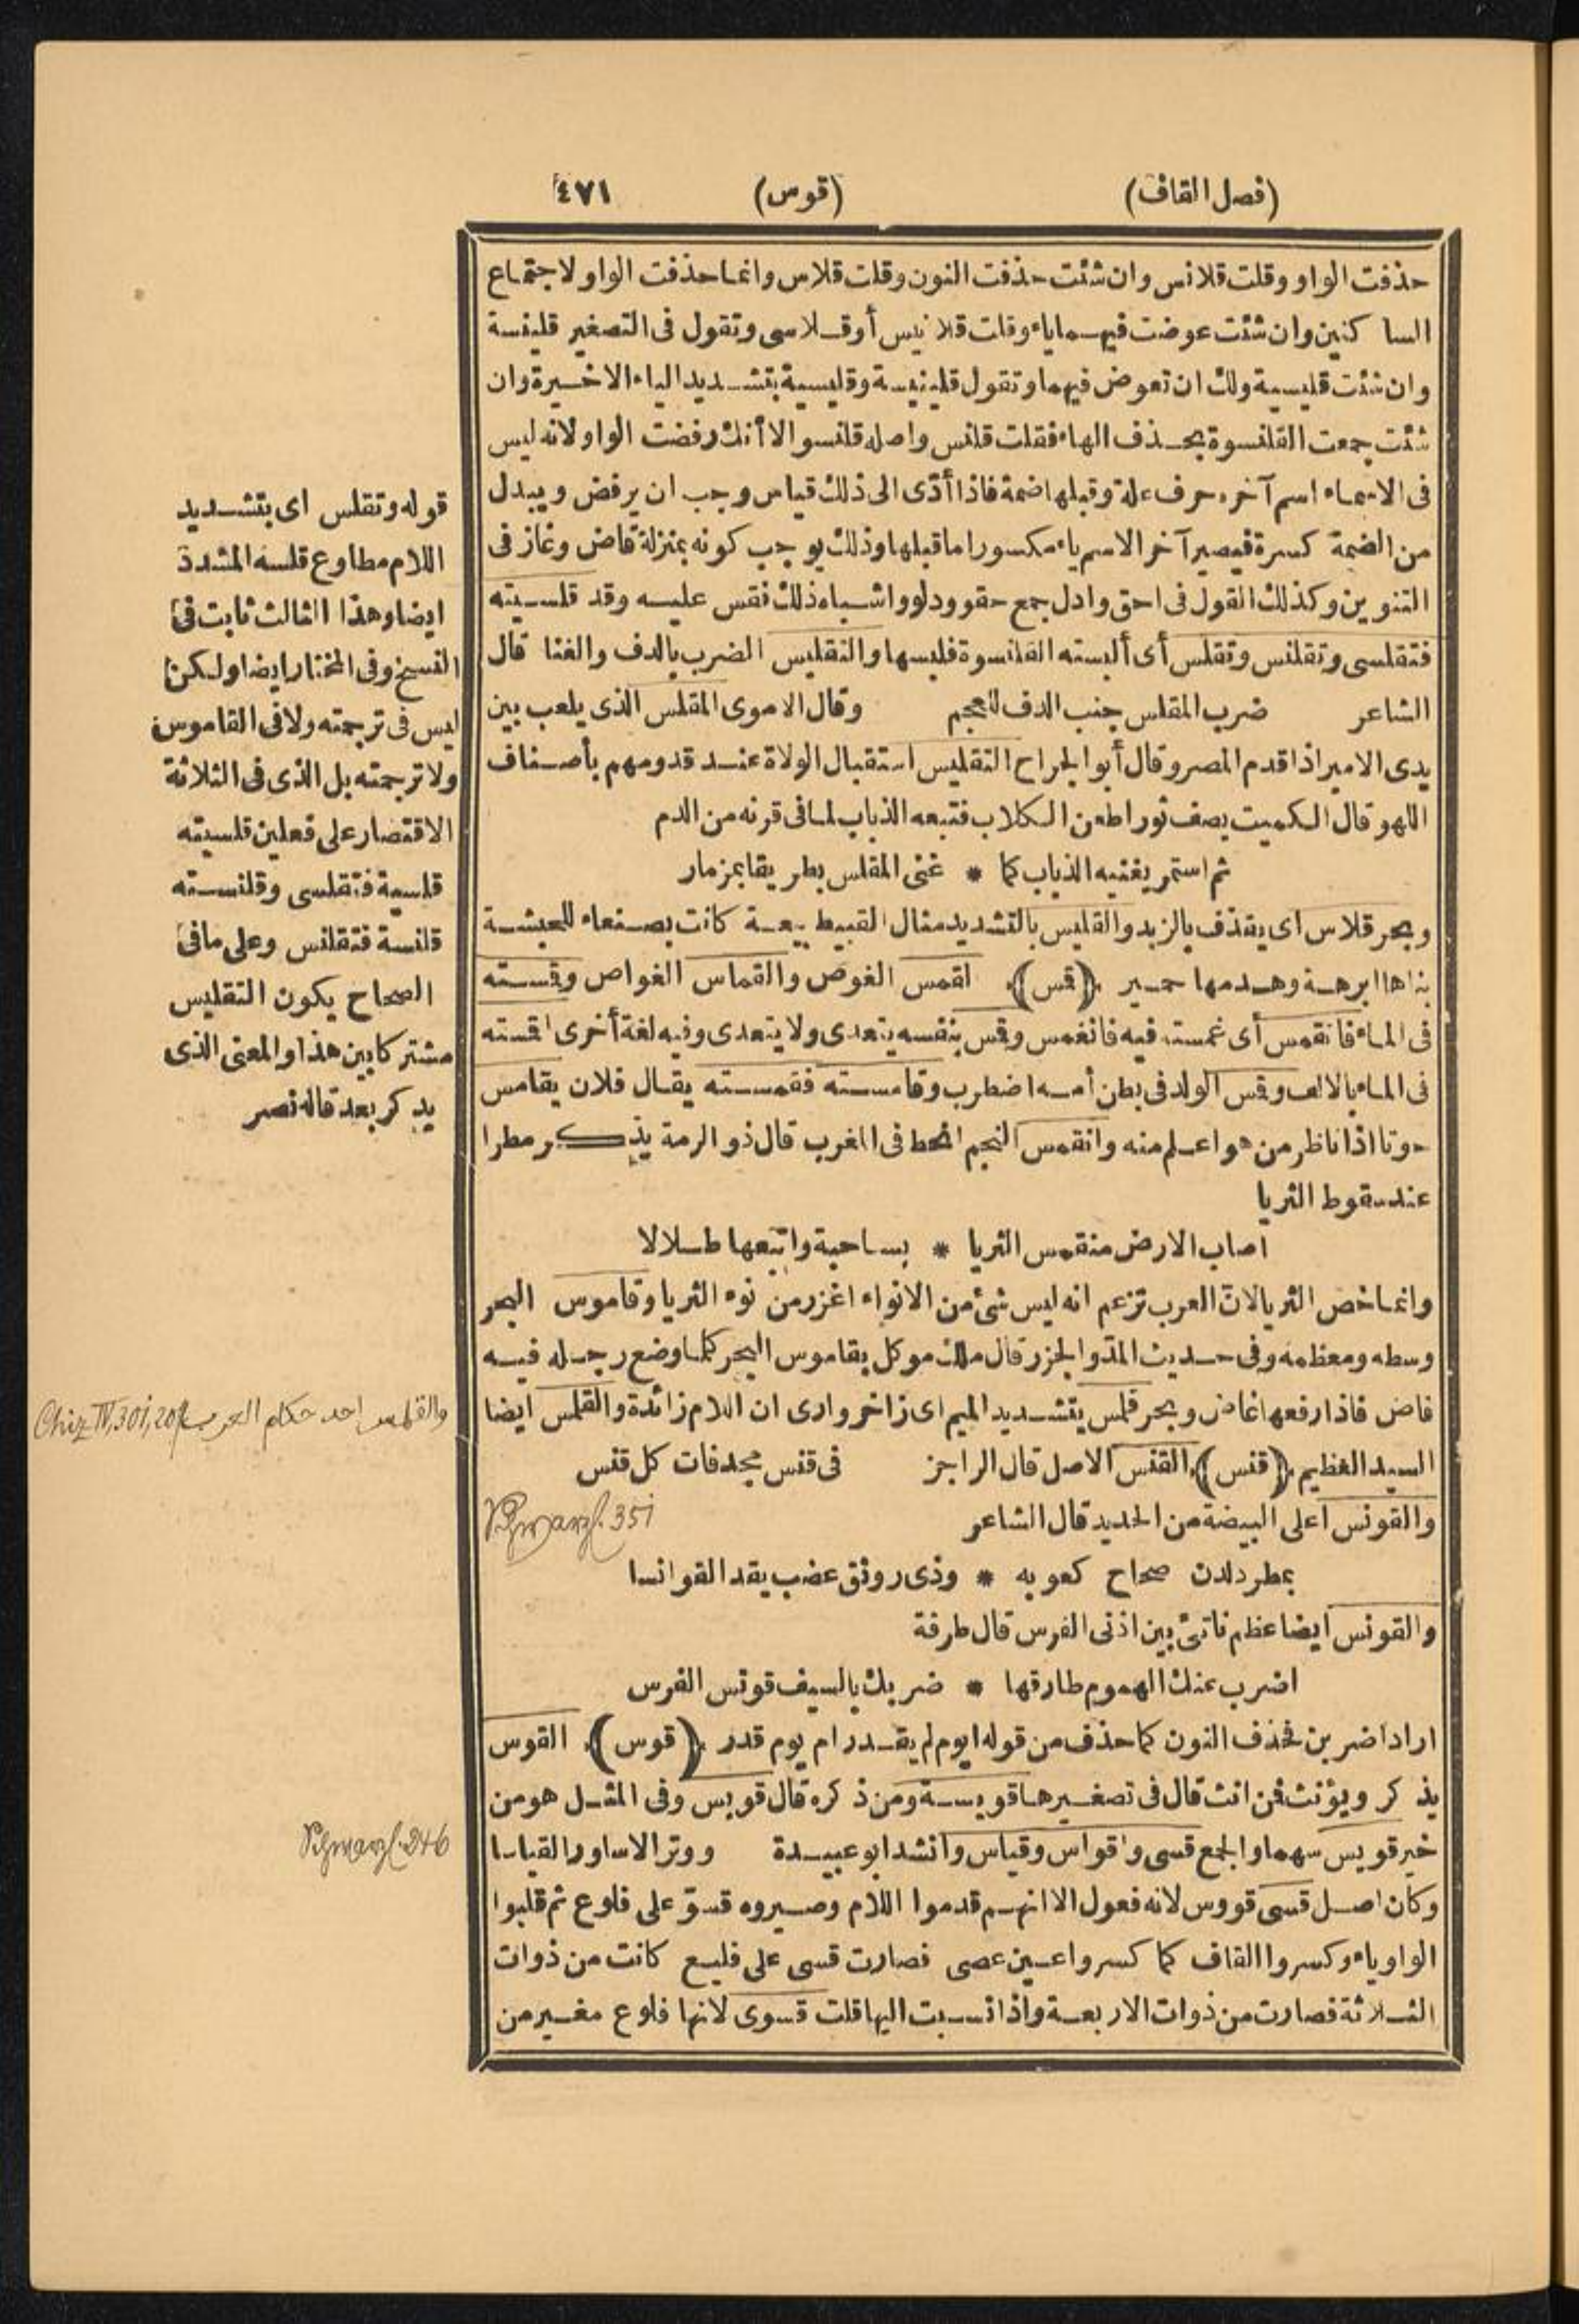 (فصل القاف) (قوس) ٤٧١
حذفت الواو وقلت قلانس وان شئت حذفت النون وقلت قلاس وانما حذفت الواو لاجتماع
الساكنين وان شئت عوضت فيهما ياء وقلت قلانيس أو قلاسى وتقول فى التصغير قلينسة
وان شئت قليسية ولك ان تعوض فيهما وتقول قلينيسة وقليسية بتشديد الياء الاخيرة وان
شئت جمعت القلنسوة بحذف الهاء فقلت قلنس واصله قلنسو الا أنك رفضت الواو لانه ليس
فى الاسماء اسم آخره حرف علة وقبلها ضمة فاذا أدّى الى ذلك قياس وجب ان يرفض ويبدل
من الضمة كسرة فيصير آخر الاسم ياء مكسورا ما قبلها وذلك يوجب كونه بمنزلة قاض وغاز فى
التنوين وكذلك القول فى احق وادل جمع حقو ودلو واشباه ذلك فقس عليه وقد قلسيته
فتقلسى وتقلنس وتقلس أى ألبسته القلنسوة فلبسها والتقليس الضرب بالدف والغنا قال
الشاعر ضرب المقلس جنب الدف للعجم وقال الاموى المقلس الذى يلعب بين
يدى الامير اذا قدم المصر وقال أبو الجراح التقليس استقبال الولاة عند قدومهم بأصناف
اللهو قال الكميت يصف ثورا طعن الكلاب فتبعه الذباب لما فى قرنه من الدم
ثم استمر يغنيه الذباب كما * غنى المقلس بطريقا بمزمار
وبحر قلاس اى يقذف بالزبد والقليس بالتشديد مثال القبيط بيعة كانت بصنعاء للحبشة
بناها ابرهة وهدمها حمير (قمس) القمس الغوص والقماس الغواص وقمسته
فى الماء فانقمس أى غمسته فيه فانغمس وقمس بنفسه يتعدى ولا يتعدى وفيه لغة أخرى اقمسته
فى الماء بالالف وقمس الولد فى بطن أمه اضطرب وقامسته فقمسته يقال فلان يقامس
حوتا اذا ناظر من هو اعلم منه وانقمس النجم انحط فى المغرب قال ذو الرمة يذكر مطرا
عند سقوط الثريا
اصاب الارض منقمس الثريا * بساحية واتبعها طلالا
وانما خص الثريا لانّ العرب تزعم انه ليس شئ من الانواء اغزر من نوء الثريا وقاموس البحر
وسطه ومعظمه وفى حديث المدّ والجزر قال ملك موكل بقاموس البحر كلما وضع رجله فيه
فاض فاذا رفعها غاض وبحر قلمس بتشديد الميم اى زاخر وارى ان اللام زائدة والقلمس ايضا
السيد العظيم (قنس) القنس الاصل قال الراجز فى قنس مجد فات كل قنس
والقونس اعلى البيضة من الحديد قال الشاعر
بمطرد لدن صحاح كعوبه * وذى رونق عضب يقد القوانسا
والقونس ايضا عظم ناتئ بين اذنى الفرس قال طرفة
اضرب عنك الهموم طارقها * ضربك بالسيف قونس الفرس
اراد اضربن فحذف النون كما حذف من قوله ايوم لم يقدر ام يوم قدر (قوس) القوس
يذكر ويؤنث فمن انث قال فى تصغيرها قويسة ومن ذكره قال قويس وفى المثل هو من
خير قويس سهما والجمع قسى واقواس وقياس وانشد ابو عبيدة ووتر الاساور القياسا
وكان اصل قسى قووس لانه فعول الا انهم قدموا اللام وصيروه قسوّ على فلوع ثم قلبوا
الواو ياء وكسروا القاف كما كسروا عين عصى فصارت قسى على فليع كانت من ذوات
الثلاثة فصارت من ذوات الاربعة واذا نسبت اليها قلت قسوى لانها فلوع مغير من
قوله وتقلس اى بتشديد
اللام مطاوع قلسه المشددة
ايضا وهذا الثالث ثابت فى
النسخ وفى المختار ايضا ولكن
ليس فى ترجمته ولا فى القاموس
ولا ترجمته بل الذى فى الثلاثة
الاقتصار على فعلين قلسيته
قلسية فتقلسى وقلنسته
قلنسة فتقلنس وعلى ما فى
الصحاح يكون التقليس
مشتركا بين هذا والمعنى الذى
يذكر بعد قاله نصر
والقلمس احد حكام العرب Chiz. IV, 301, 20
Schwarzl. 351
Schwarzl. 246